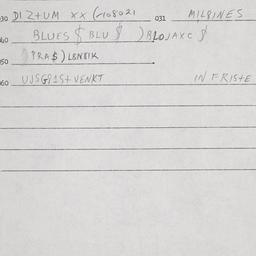 030 DIZ+UM XX (~108021 031 MILPINES
040 BLUES $ BLU $ ) BLOJAXC $
050 PRA$ ) LBNEIK
060 UJSGP1S+ VENKT IN FRISTE